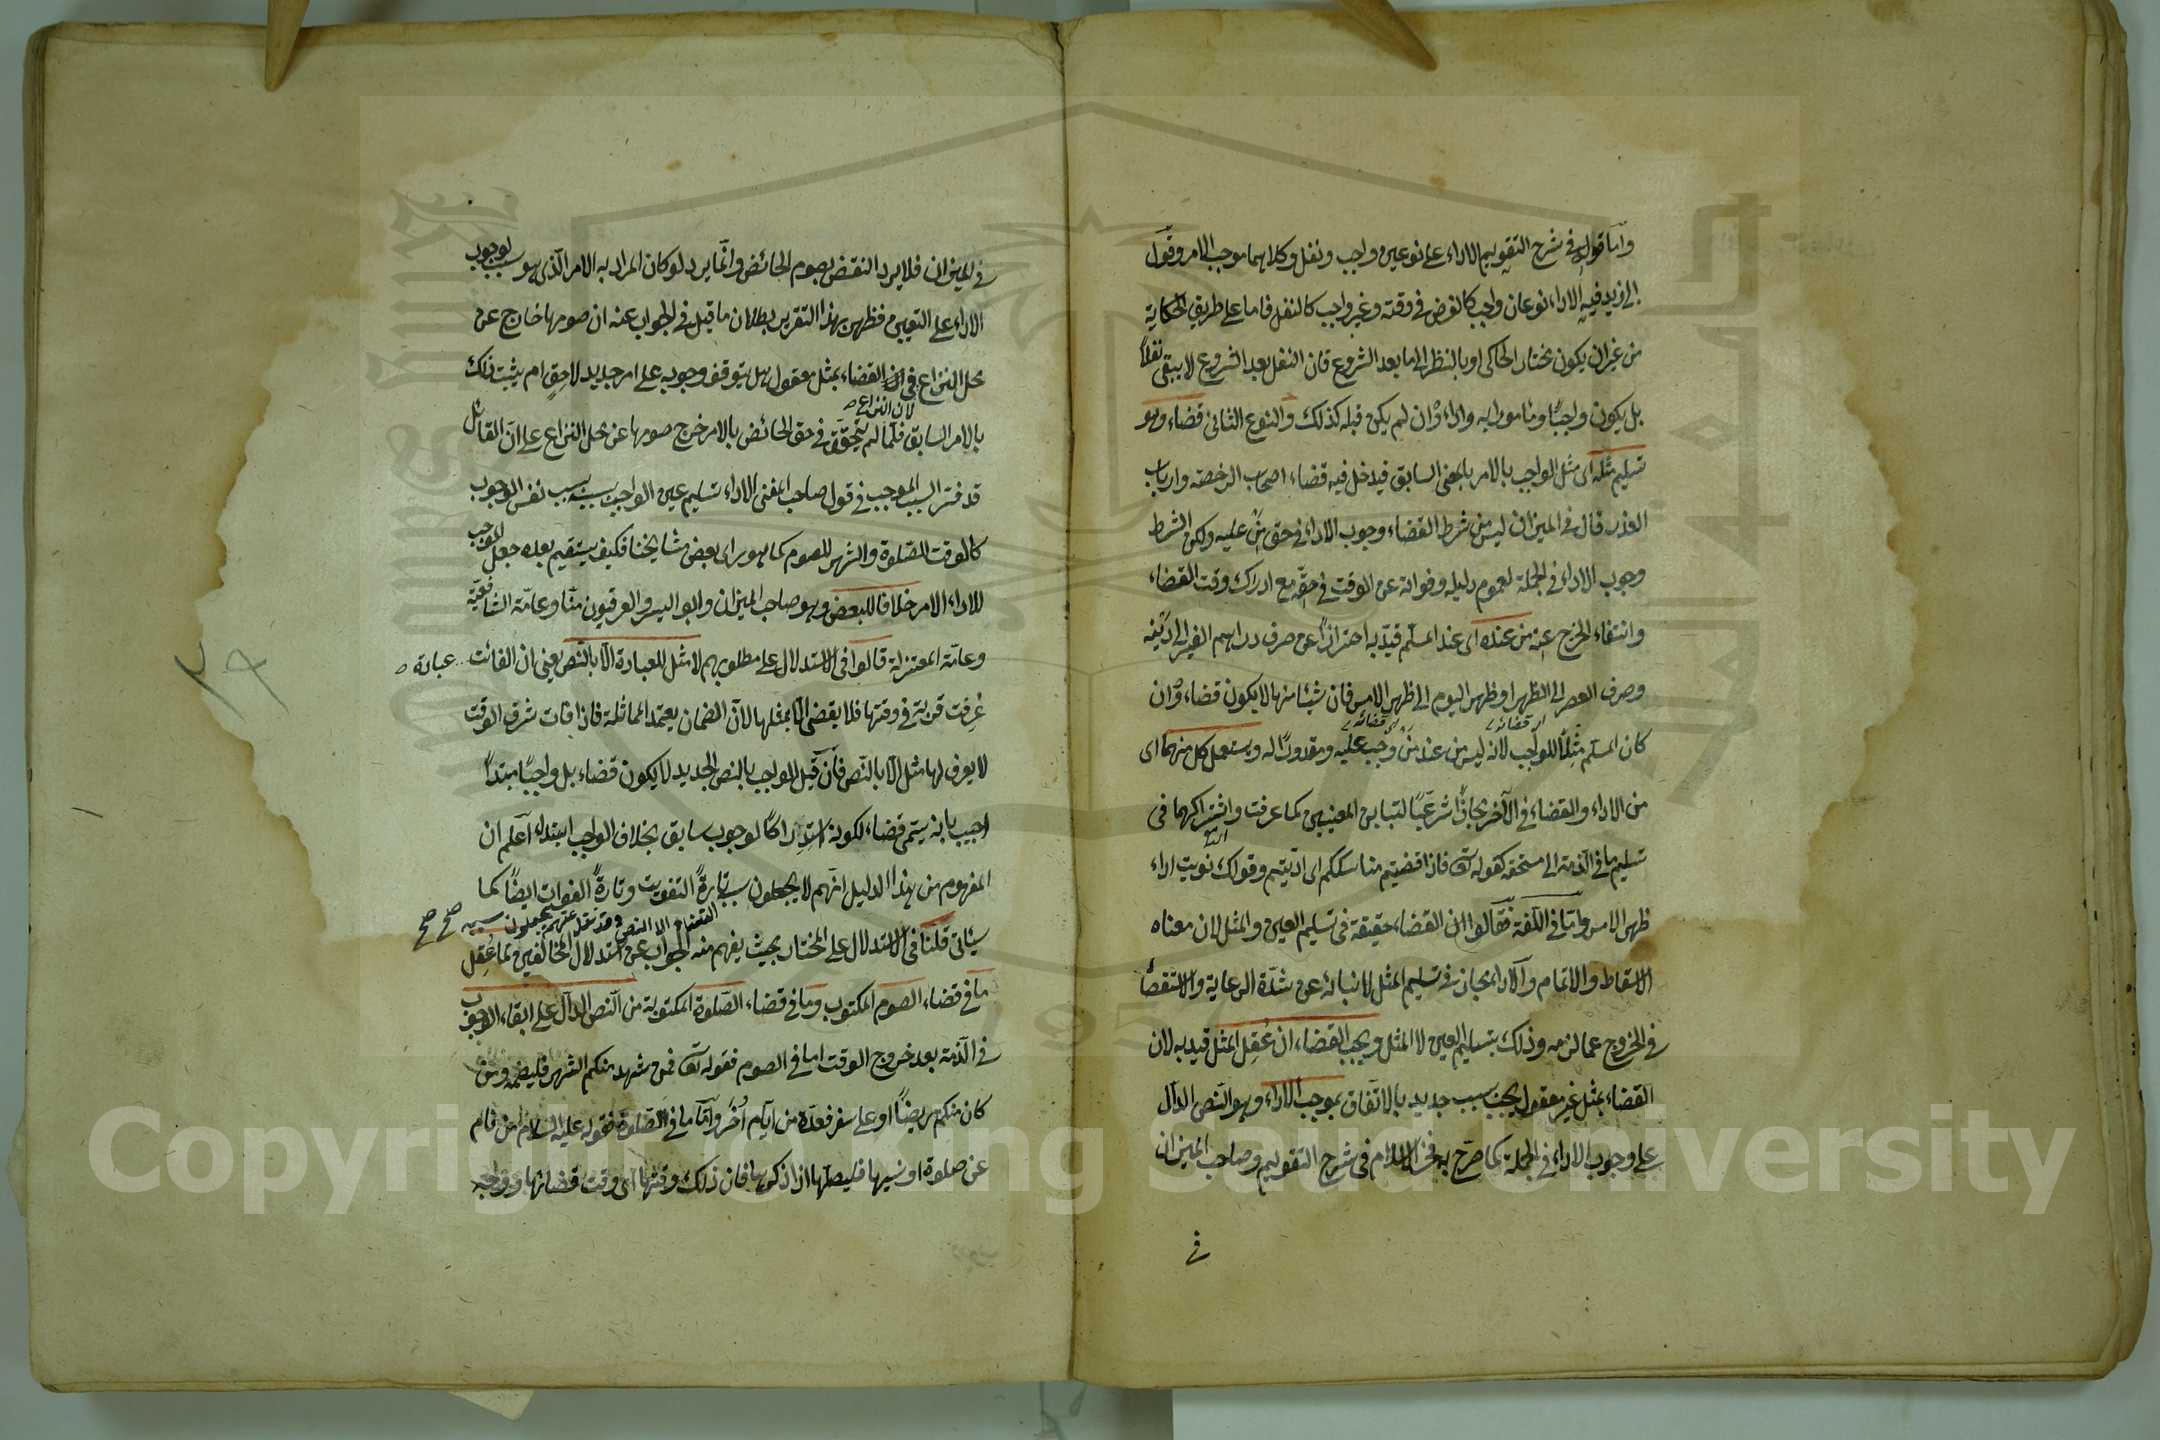 واما قوله في شرح التقويم الاداء على نوعين واجب ونفل وكلاهما موجب الامر وقول
ابي زيد فيه الاداء نوعان واجب كالفرض في وقته وغير واجب كالنفل فاما على طريق الحكاية
من غير ان يكون مختار الحاكي او بالنظر الى ما بعد الشروع فان النفل بعد الشروع لا يبقى نفلا
بل يكون واجبا ومامورا به واداء وان لم يكن قبله كذلك والنوع الثاني قضاء وهو
تسليم مثله اى مثل الواجب بالامر بالمعنى السابق فيدخل فيه قضاء اصحاب الرخصة وارباب
العذر قال في الميزان ليس من شرط القضاء وجوب الاداء في حق من عليه ولكن الشرط
وجوب الاداء في الجملة لعموم دليله وفواته عن الوقت في حقه مع ادراك وقت القضاء
وانتفاء الحرج عنه من عنده اى عند المسلم قيد به احترازا عن صرف دراهم الغير الى دينه
وصرف العصر الى الظهر او ظهر اليوم الى ظهر الامس فان شيئا منها لا يكون قضاء وان
كان المسلم مثلا للواجب لانه ليس من عند من وجب عليه ومقدورا له ويستعمل كل منهما اى
من الاداء والقضاء في الآخر مجازا شرعيا لتباين المعنيين كما عرفت واشتراكهما في
تسليم ما في الذمة الى مستحقه كقوله تعالى فاذا قضيتم مناسككم اى اديتم وقولك نويت اداء
ظهر الامس واما في اللغة فقالوا ان القضاء حقيقة في تسليم العين والمثل لان معناه
الاسقاط والاتمام والاداء مجاز في تسليم المثل لانبائه عن شدة الرعاية والاستقصاء
في الخروج عما لزمه وذلك بتسليم العين لا المثل ويجب القضاء ان عقل المثل قيد به لان
القضاء بمثل غير معقول يجب بسبب جديد بالاتفاق بموجب الاداء وهو النص الدال
على وجوب الاداء في الجملة كما صرح به فخر الاسلام في شرح التقويم وصاحب الميزان
في
في الميزان فلا يرد النقض بصوم الحائض وانما يرد لو كان المراد به الامر الذي هو سبب لوجوب
الاداء على التعيين فظهر بهذا التقرير بطلان ما قيل في الجواب عنه ان صومها خارج عن
محل النزاع في القضاء بمثل معقول هل يتوقف وجوبه على امر جديد لاحق ام يثبت ذلك
لان النزاع
بالامر السابق فلما لم يتحقق في حق الحائض بالامر خرج صومها عن محل النزاع على ان القائل
قد فسر السبب الموجب في قول صاحب المغنى الاداء تسليم عين الواجب بسببه بسبب نفس الوجوب
كالوقت للصلوة والشهر للصوم كما هو راى بعض مشايخنا فكيف يستقيم بعده جعل الموجب
للاداء الامر خلافا للبعض وهو صاحب الميزان وابو اليسر والعراقيون منا وعامة الشافعية
وعامة المعتزلة قالوا في الاستدلال على مطلوبهم لا مثل للعبادة الا بالنص يعني ان الفائت عبادة
عرفت قربة في وقتها فلا يقضى الا بمثلها لان الضمان يعتمد المماثلة فاذا فات شرف الوقت
لا يعرف لها مثل الا بالنص فان قيل الواجب بالنص الجديد لا يكون قضاء بل واجبا مبتدأ
اجيب بانه يسمى قضاء لكونه استدراكا لوجوب سابق بخلاف الواجب ابتداء اعلم ان
المفهوم من هذا الدليل انهم لا يجعلون سبب القضاء الا النص وقد نقل عنهم يجعلون سببه صح صح
تارة التفويت وتارة الفوات ايضا كما
سياتى قلنا في الاستدلال على المختار بحيث يفهم منه الجواب عن استدلال المخالفين لما عقل
ما في قضاء الصوم المكتوب وما في قضاء الصلوة المكتوبة من النص الدال على ابقاء الوجوب
في الذمة بعد خروج الوقت اما في الصوم فقوله تعالى فمن شهد منكم الشهر فليصمه ومن
كان منكم مريضا او على سفر فعدة من ايام اخر واما ما في الصلوة فقوله عليه السلام من نام
عن صلوة او نسيها فليصلها اذا ذكرها فان ذلك وقتها اى وقت قضائها ووجه
Copyright © King Saud University